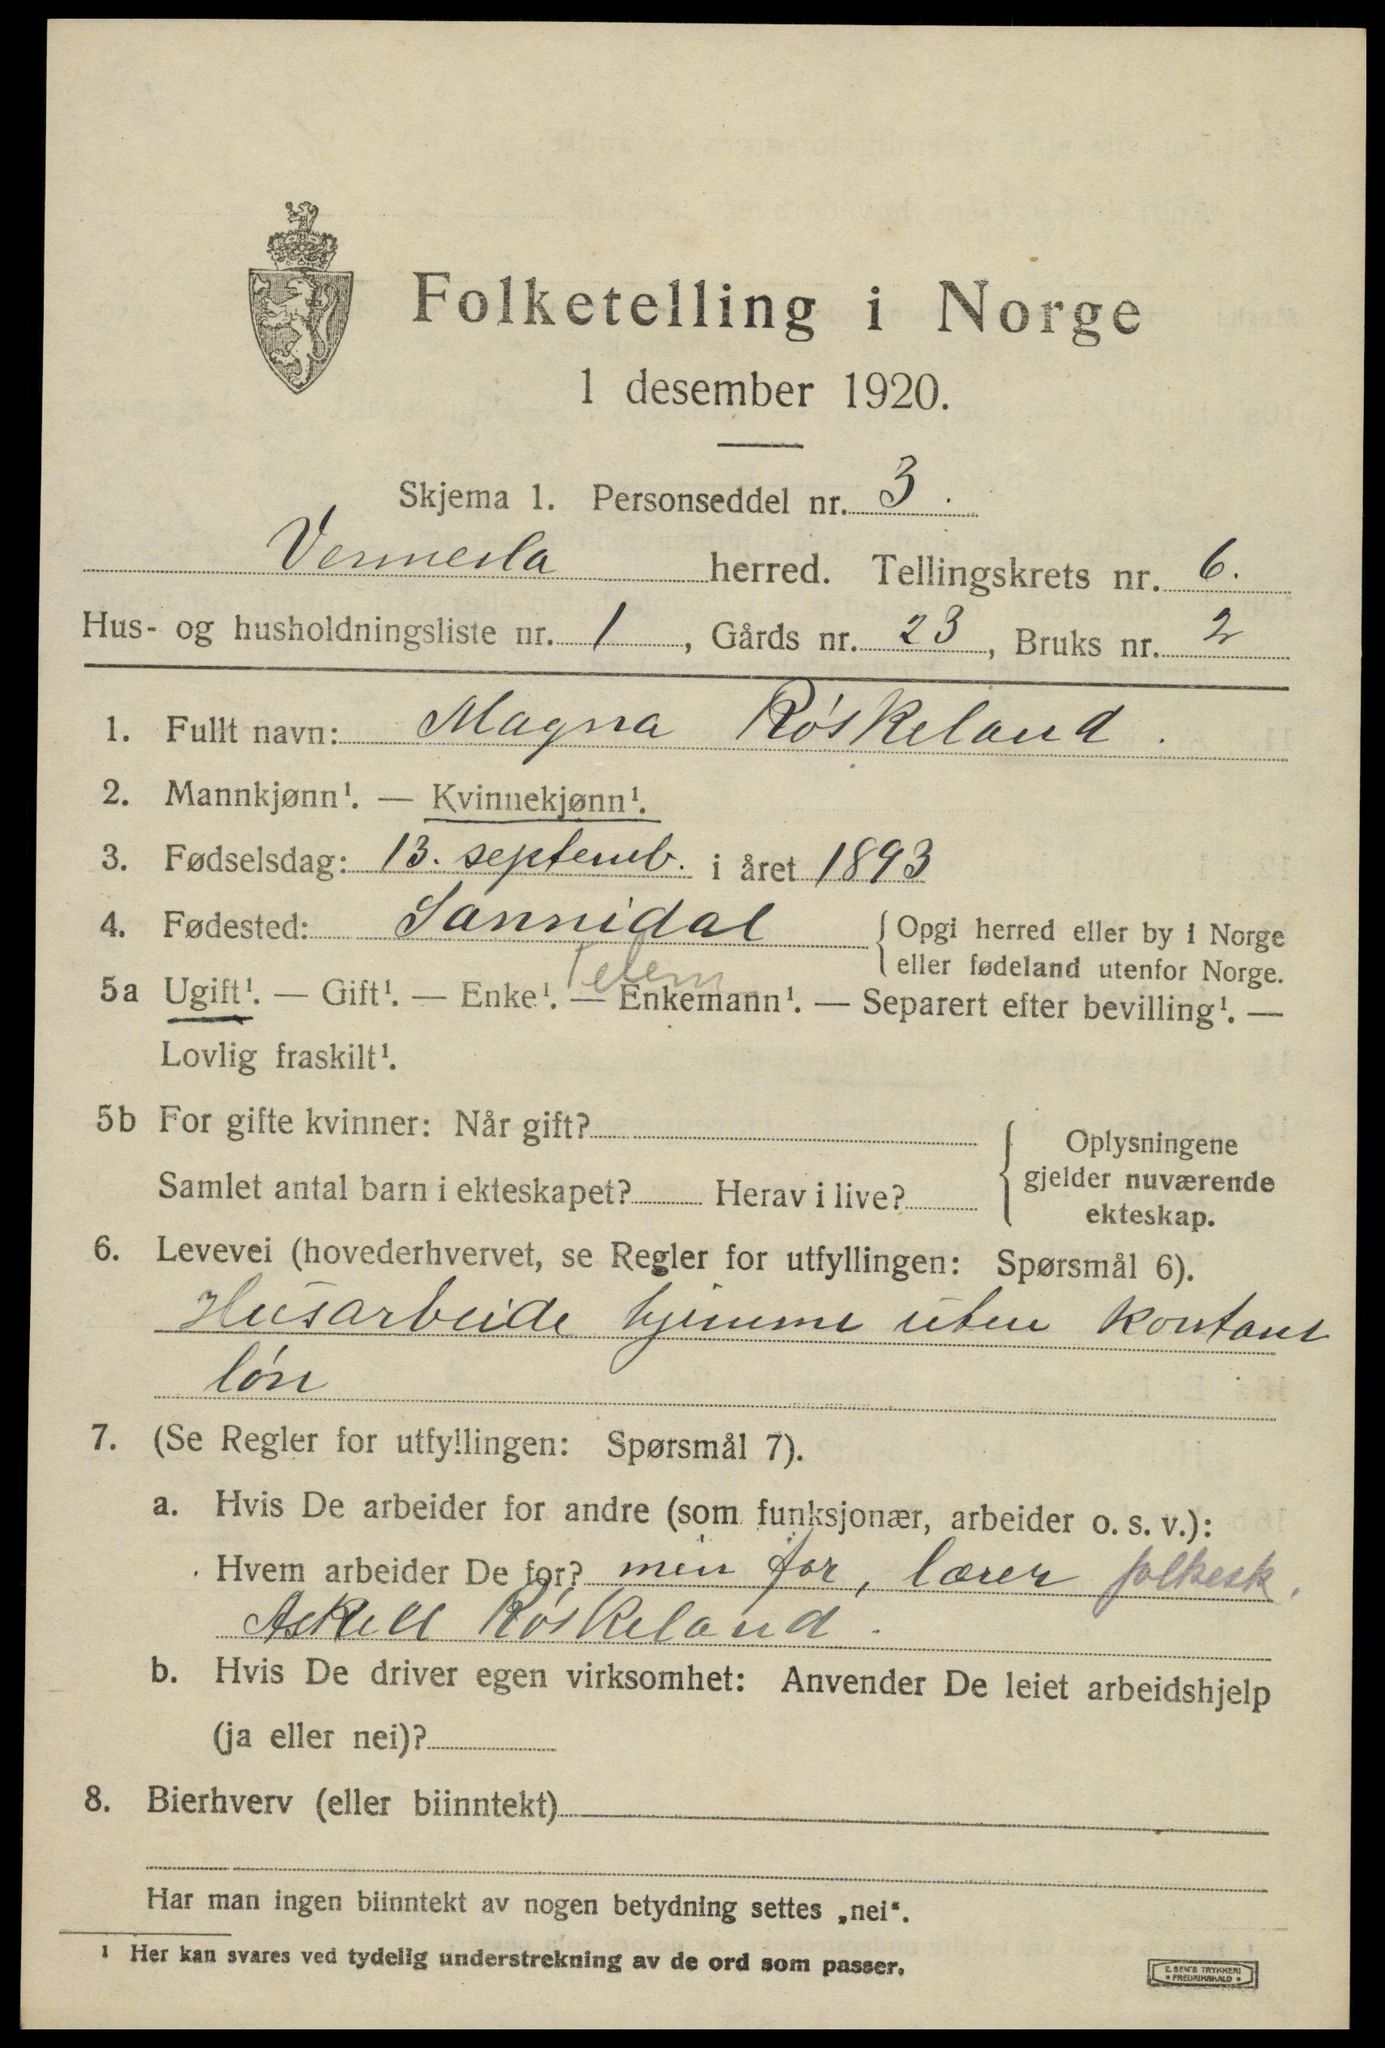 Folketelling i Norge
1 desember 1920.
Skjema 1. Personseddel nr. 3.
Vennesla herred. Tellingskrets nr. 6.
Hus- og husholdningsliste nr. 1, Gårds nr. 23, Bruks nr. 2
1. Fullt navn: Magna Røskeland.
2. Mannkjønn¹. — Kvinnekjønn¹.
3. Fødselsdag: 13. septemb. i året 1893
4. Fødested: Sannidal { Opgi herred eller by i Norge
eller fødeland utenfor Norge.
Telem
5a Ugift¹. — Gift¹. — Enke¹. — Enkemann¹. — Separert efter bevilling¹. —
Lovlig fraskilt¹.
5b For gifte kvinner: Når gift?
Samlet antal barn i ekteskapet? Herav i live?
{ Oplysningene
gjelder nuværende
ekteskap.
6. Levevei (hovederhvervet, se Regler for utfyllingen: Spørsmål 6).
Husarbeide hjemme uten kontant
løn
7. (Se Regler for utfyllingen: Spørsmål 7).
a. Hvis De arbeider for andre (som funksjonær, arbeider o. s. v.):
Hvem arbeider De for? min far, lærer folkesk.
Askell Røskeland.
b. Hvis De driver egen virksomhet: Anvender De leiet arbeidshjelp
(ja eller nei)?
8. Bierhverv (eller biinntekt)
Har man ingen biinntekt av nogen betydning settes „nei“.
¹ Her kan svares ved tydelig understrekning av de ord som passer.
E. SEM'S TRYKKERI
FREDRIKSHALD